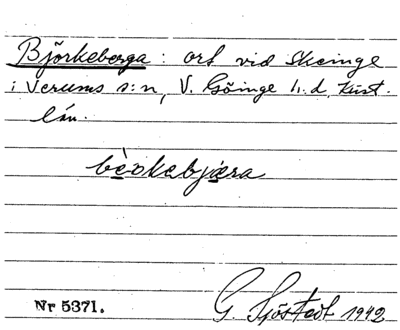 Björkeberga: ort vid Skeinge
i Verums s:n, V. Göinge h.d, Krist.
län.
bèokebjæra
G. Sjöstedt 1942
Nr 5371.